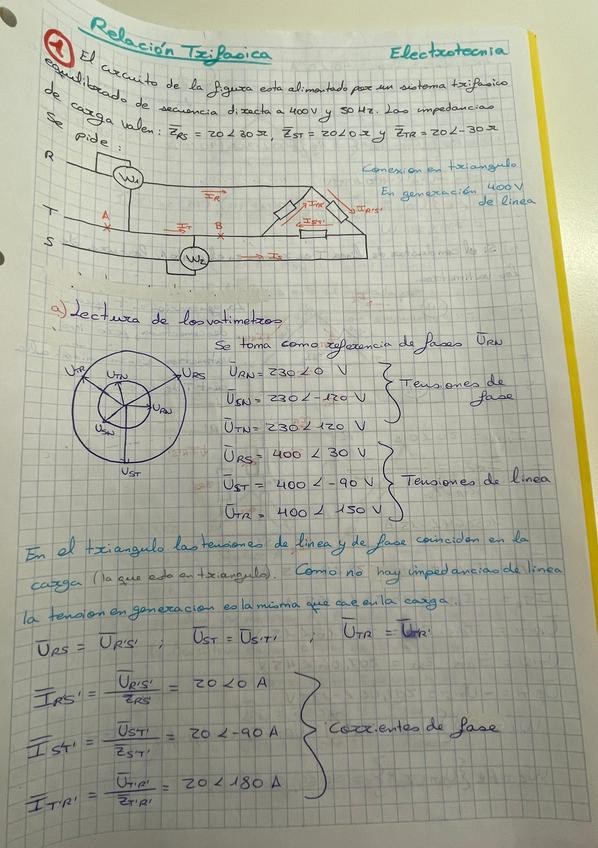 Relación Trifasica
Electrotecnia
1 El circuito de la figura esta alimentado por un sistema trifasico
equilibrado de secuencia directa a 400V y 50 Hz. Las impedancias
de carga valen: Z̅RS = 20∠30 Ω, Z̅ST = 20∠0 Ω y Z̅TR = 20∠-30 Ω
Se pide:
Conexion en triangulo
En generación 400V
de linea
R
W1
I̅R
ITR
IR'S'
T
A
IT
B
IS'T'
S
W2
IS
a) Lectura de los vatimetros
Se toma como referencia de fases U̅RN
UTR
UTN
URS
URN
USN
UST
U̅RN = 230∠0 V
U̅SN = 230∠-120 V
U̅TN = 230∠120 V
Tensiones de
fase
U̅RS = 400∠30 V
U̅ST = 400∠-90 V
U̅TR = 400∠150 V
Tensiones de linea
En el triangulo las tensiones de linea y de fase coinciden en la
carga (la que esta en triangulo). Como no hay impedancias de linea
la tension en generacion es la misma que cae en la carga.
U̅RS = U̅R'S' ; U̅ST = U̅S'T' ; U̅TR = U̅TR'
I̅RS' = U̅R'S' / Z̅RS' = 20∠0 A
I̅ST' = U̅ST' / Z̅ST' = 20∠-90 A
I̅T'R' = U̅T'R' / Z̅T'R' = 20∠180 A
Corrientes de fase